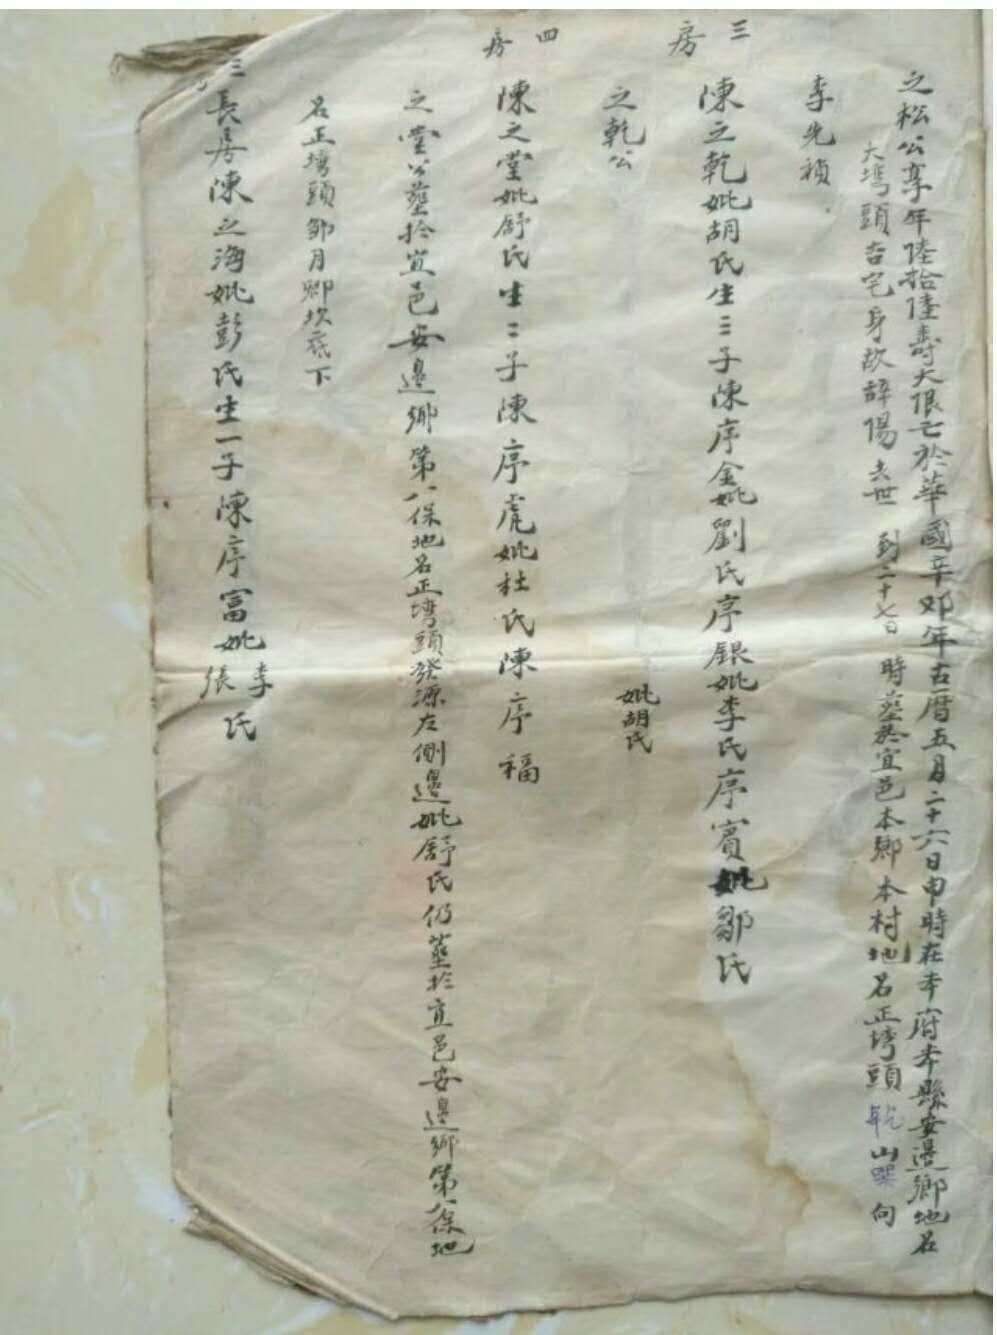 之松公享年陸拾陸壽大限亡於華國辛卯年古曆五月二十六日申時在本府本縣安邊鄉地名
大塆頭吉宅身故辭陽去世 到二十七日 時塟於宜邑本鄉本村地名正塆頭乾山巽向
李先禎
三房
陳之乾妣胡氏生三子陳序金妣劉氏序銀妣李氏序賓妣鄒氏
之乾公 妣胡氏
四房
陳之堂妣舒氏生二子陳序虎妣杜氏陳序福
之堂公塟於宜邑安邊鄉第八保地名正塆頭發源左側邊妣舒氏仍塟於宜邑安邊鄉第八保地
名正塆頭鄒月卿坎底下
三
長房陳之海妣彭氏生一子陳序富妣李張氏